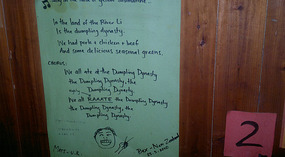 In the land of the River Li
Is the dumpling dynasty.
We had pork & chicken & beef
And some delicious seasonal greens.
CHORUS:
We all ate at the Dumpling Dynasty
the Dumpling Dynasty, the
Dumpling Dynasty
We all the Dumpling Dynasty
the Dumpling Dynasty, the
Dumpling Dynasty.
New Zealand
2